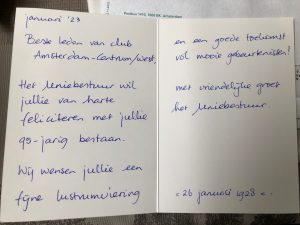 Postbus 1410, 1000 BK Amsterdam
januari '23
Beste leden van club
Amsterdam-Centrum/West,
Het Uniebestuur wil
jullie van harte
feliciteren met jullie
95-jarig bestaan.
Wij wensen jullie een
fijne lustrumviering
en een goede toekomst
vol mooie gebeurtenissen!
met vriendelijke groet
het Uniebestuur.
- 26 januari 1928 -.